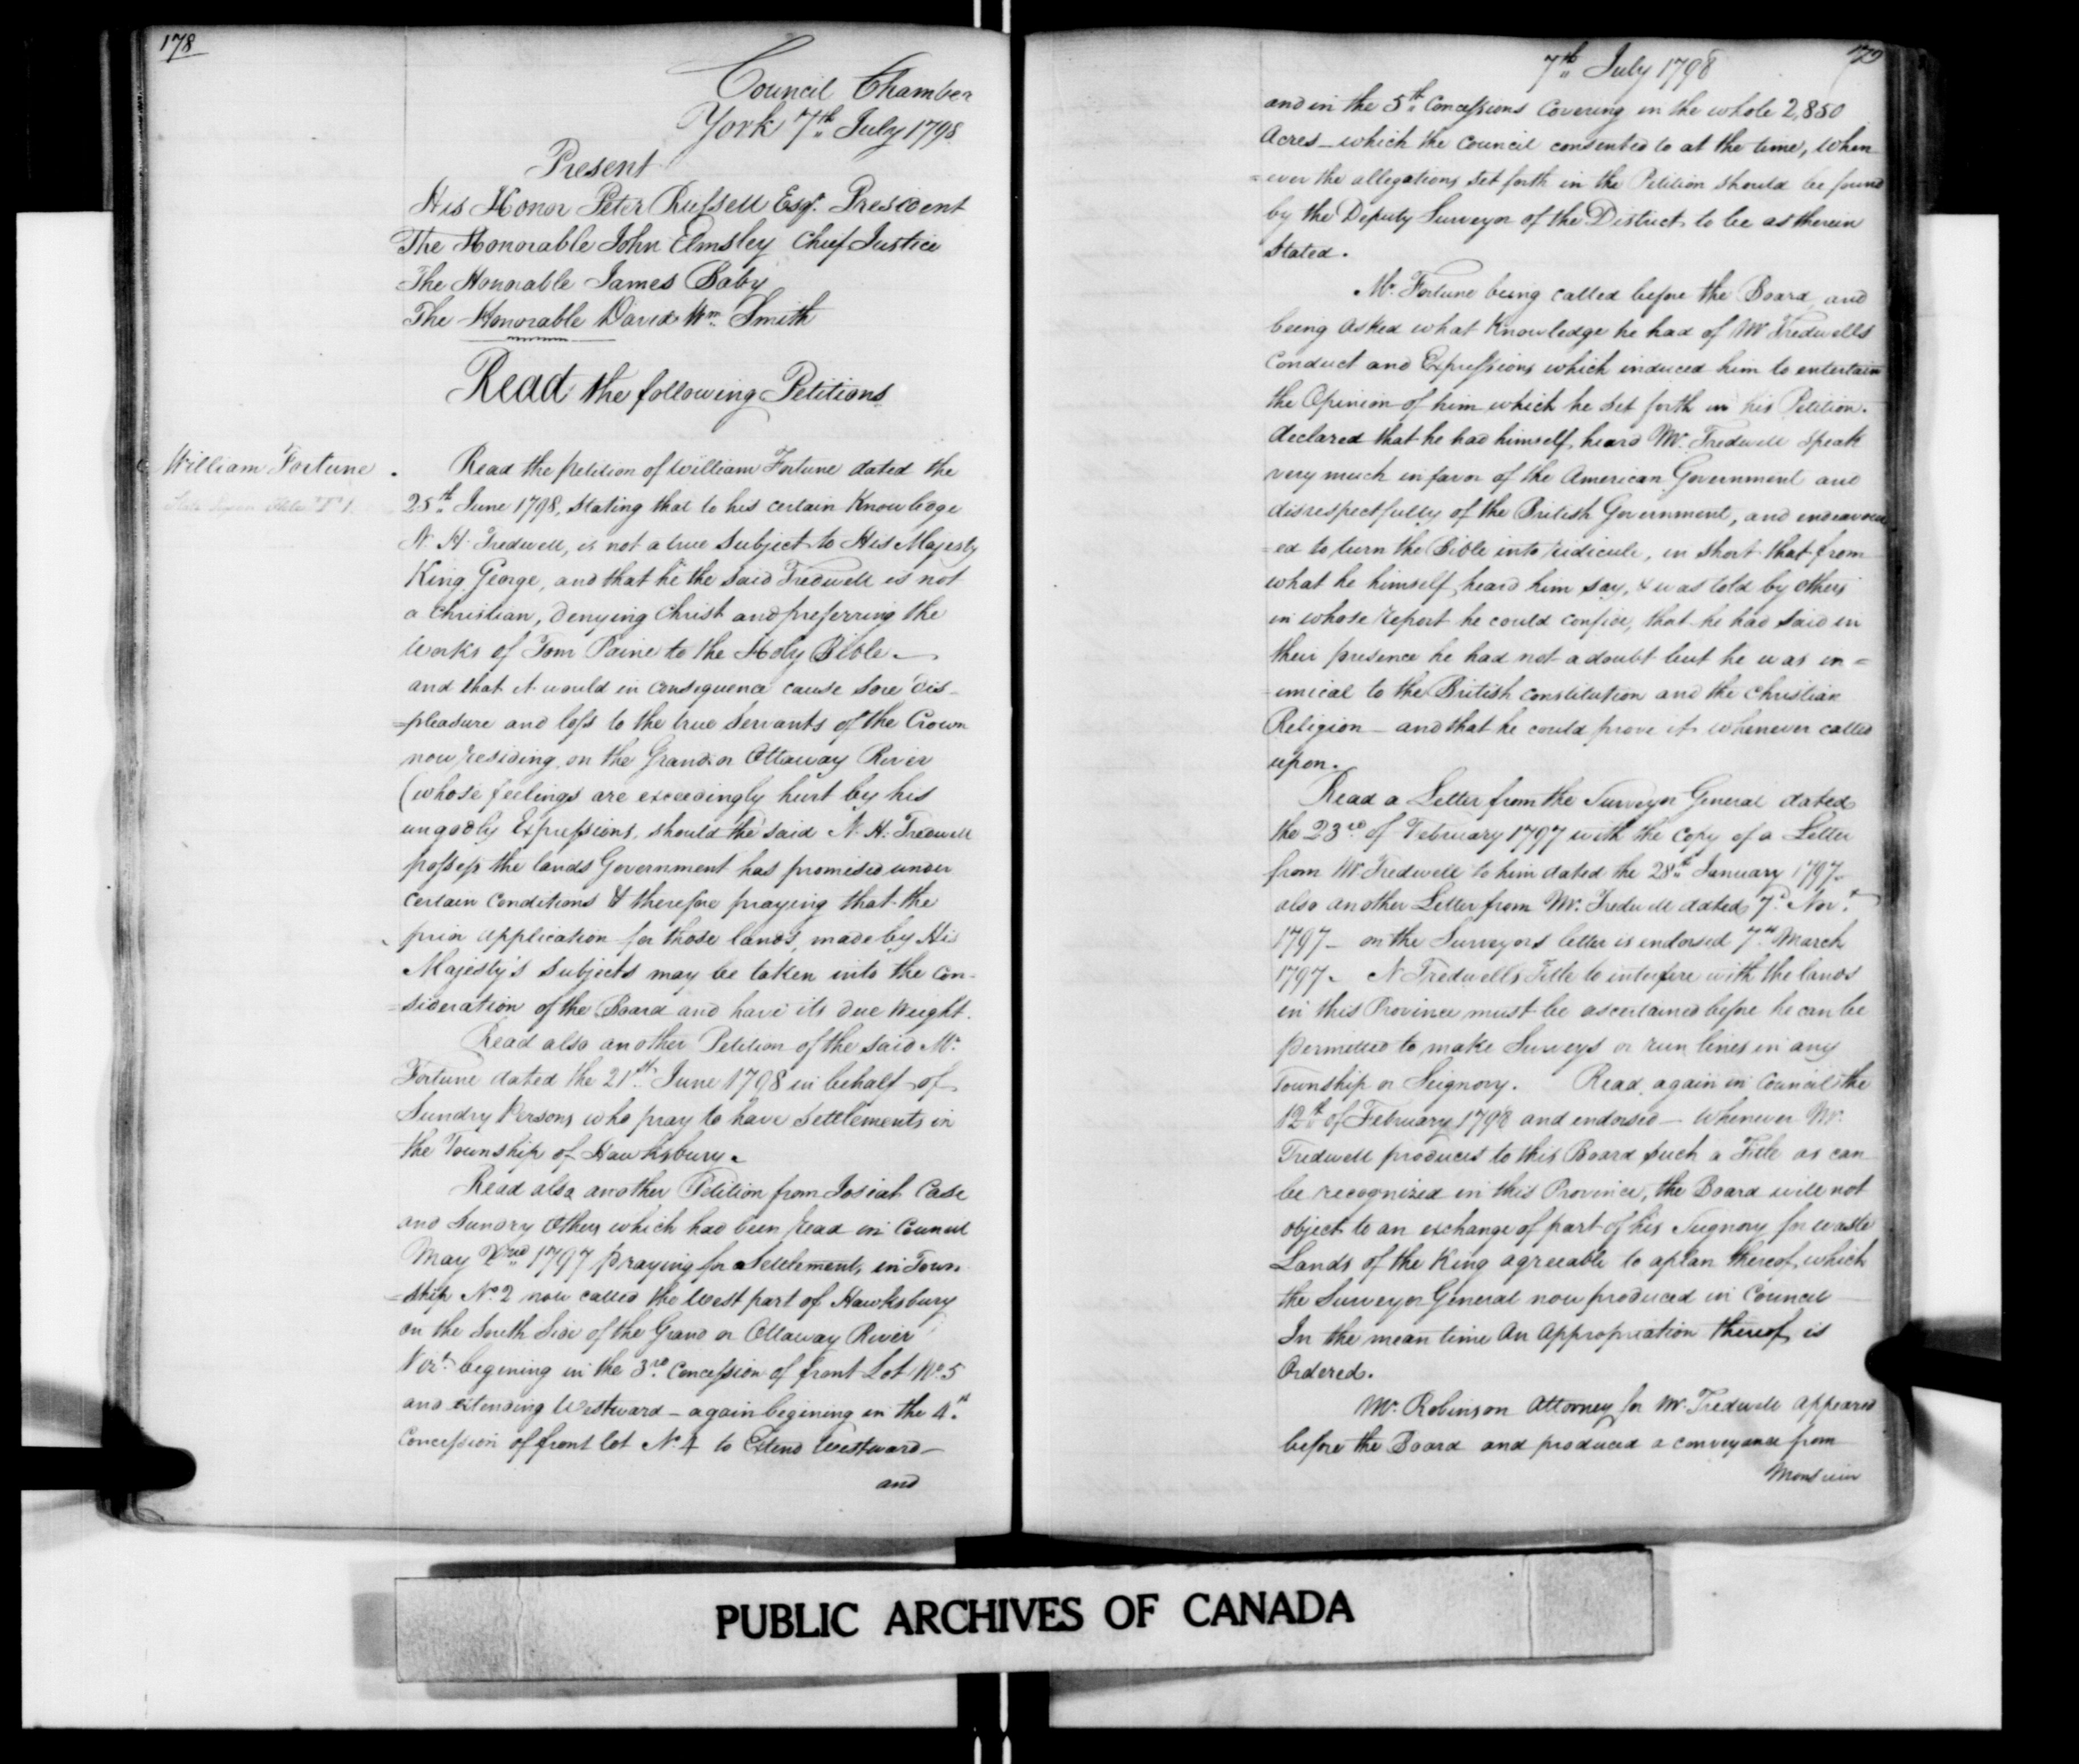 178
Council Chamber
York 7th July 1798
Present
His Honor Peter Russell Esqr. President
The Honorable John Elmsley Chief Justice
The Honorable James Baby
The Honorable David Wm. Smith
Read the following Petitions
William Fortune
Read the Petition of William Fortune dated the
25th June 1798, stating that to his certain Knowledge
N. H. Tredwell, is not a true Subject to His Majesty
King George, and that he the said Tredwell is not
a Christian, denying Christ and preferring the
Works of Tom Paine to the Holy Bible –
and that it would in consequence cause sore dis-
=pleasure and loss to the true Servants of the Crown
now residing on the Grand or Ottaway River
(whose feelings are exceedingly hurt by his
ungodly Expressions, should the said N. H. Tredwell
possess the lands Government has promised under
certain conditions & therefore praying that the
prior application for those lands, made by His
Majesty's Subjects may be taken into the Con-
=sideration of the Board and have its due weight.
Read also another Petition of the said Mr.
Fortune dated the 21st June 1798 in behalf of
Sundry Persons who pray to have Settlements in
the Township of Hawksbury.
Read also another Petition from Josiah Case
and Sundry Others which had been Read in Council
May 1797 praying for Settlement, in Town
=ship No. 2 now called the West part of Hawksbury
on the South Side of the Grand or Ottaway River
Vizt. begining in the 3rd. Concession of front Lot No. 5
and extending Westward – again begining in the 4th
Concession of front lot No. 4 to Extend Westward –
and
7th July 1798
179
and in the 5th Concessions Covering in the whole 2,850
Acres – which the Council consented to at the time, when
=ever the allegations set forth in the Petition should be found
by the Deputy Surveyor of the District to be as therein
Stated.
Mr. Fortune being called before the Board and
being asked what Knowledge he had of Mr Tredwells
Conduct and Expressions which induced him to entertain
the Opinion of him which he set forth in his Petition.
declared that he had himself heard Mr. Tredwell speak
very much in favor of the American Government and
disrespectfully of the British Government, and endeavour
=ed to turn the Bible into ridicule, in short that from
what he himself heard him say, & was told by others
in whose report he could confide, that he had said in
their presence he had not a doubt but he was in=
=imical to the British Constitution and the Christian
Religion – and that he could prove it whenever called
upon.
Read a Letter from the Surveyor General dated
the 23rd of February 1797 with the Copy of a Letter
from Mr Tredwell to him dated the 28th January 1797 –
also another Letter from Mr. Tredwell dated 7th Novr.
1797 – on the Surveyors letter is endorsed 7th March
1797. N Tredwells Title to interfere with the lands
in this Province must be ascertained before he can be
permitted to make Surveys or run lines in any
Township or Seignory. Read again in Council the
12th of February 1798 and endorsed – Whenever Mr.
Tredwell produces to this Board such a Title as can
be recognized in this Province, the Board will not
object to an exchange of part of his Seignory for waste
Lands of the King agreeable to a plan thereof, which
the Surveyor General now produced in Council –
In the mean time An Appropriation thereof is
Ordered.
Mr. Robinson Attorney for Mr. Tredwell appeared
before the Board and produced a conveyance from
Monsieur
PUBLIC ARCHIVES OF CANADA